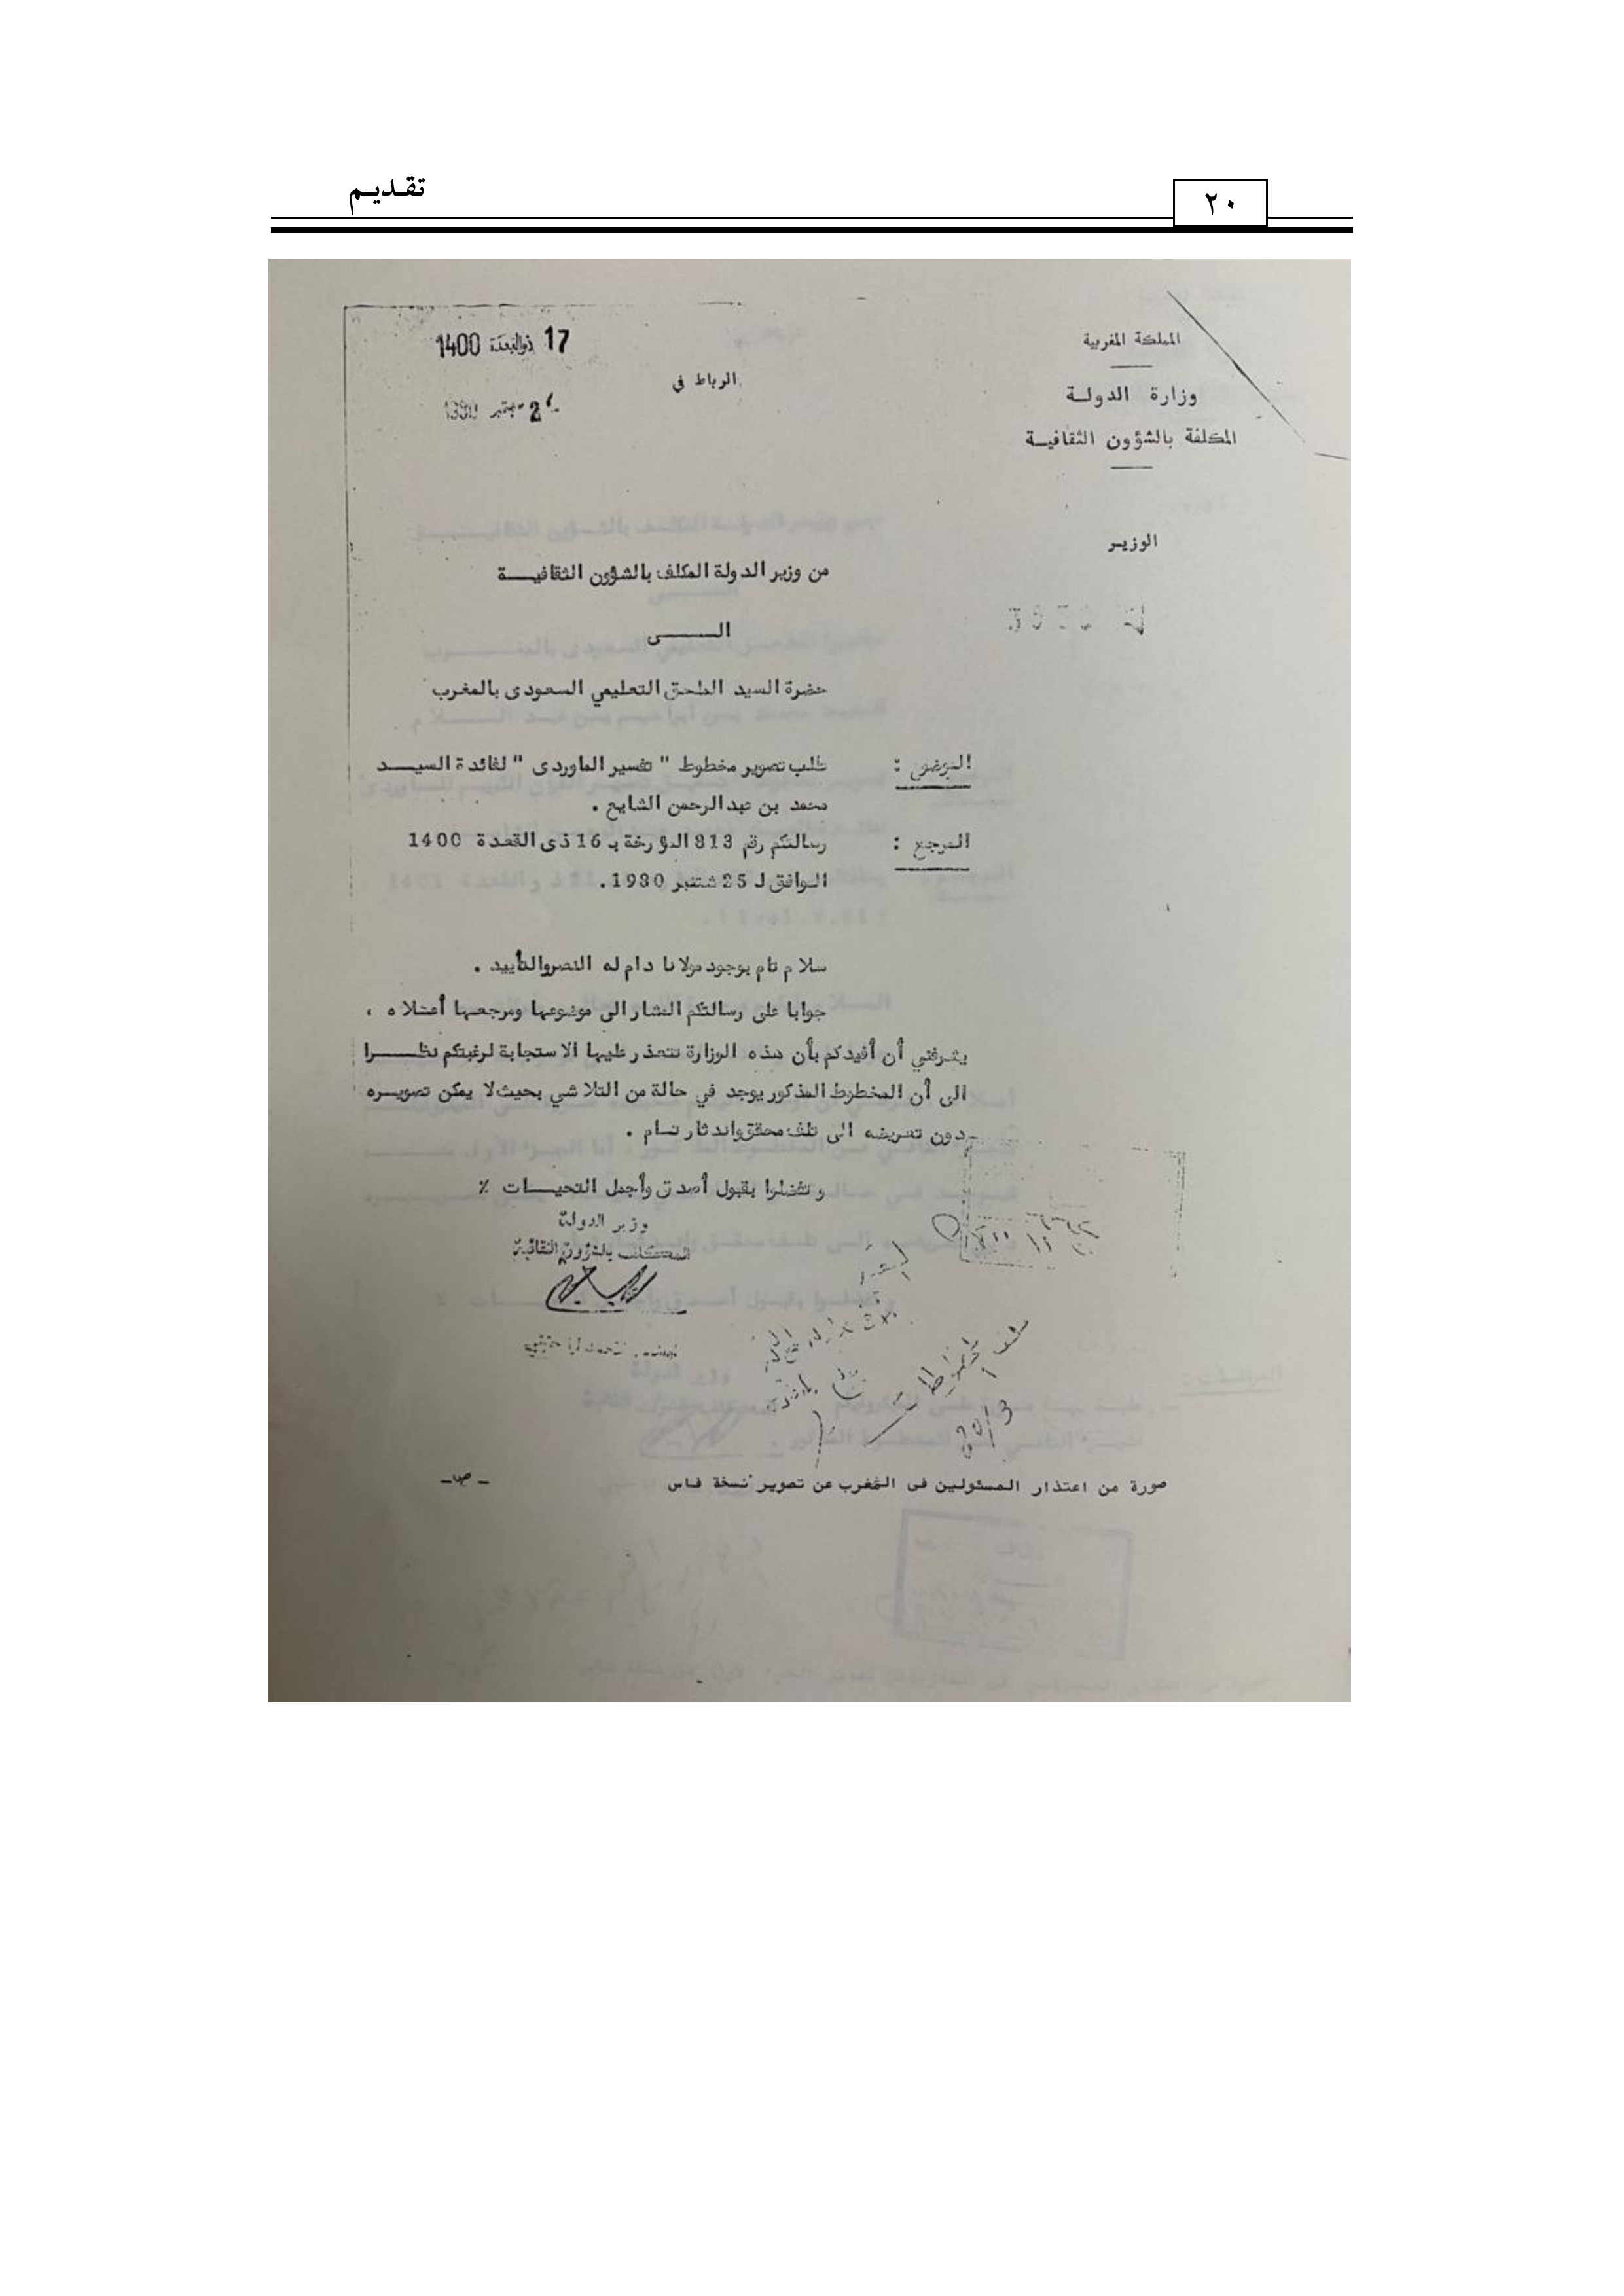 ٢٠
تقديم
المملكة المغربية
وزارة الدولة
المكلفة بالشؤون الثقافية
الوزير
17 ذو القعدة 1400
الرباط في
من وزير الدولة المكلف بالشؤون الثقافية
الى
حضرة السيد الملحق التعليمي السعودى بالمغرب
الموضوع : طلب تصوير مخطوط " تفسير الماوردى " لفائدة السيد
محمد بن عبد الرحمن الشايع .
المرجع : رسالتكم رقم 813 المؤرخة بـ 16 ذى القعدة 1400
الموافق لـ 25 شتنبر 1980 .
سلام تام بوجود مولانا دام له النصر والتأييد .
جوابا على رسالتكم المشار الى موضوعها ومرجعها أعلاه ،
يشرفني أن أفيدكم بأن هذه الوزارة تتعذر عليها الاستجابة لرغبتكم نظرا
الى أن المخطوط المذكور يوجد في حالة من التلاشي بحيث لا يمكن تصويره
دون تعريضه الى تلف محقق واندثار تام .
وتفضلوا بقبول أصدق وأجمل التحيات ٪
وزير الدولة
المكلف بالشؤون الثقافية
صورة من اعتذار المسئولين فى المغرب عن تصوير نسخة فاس